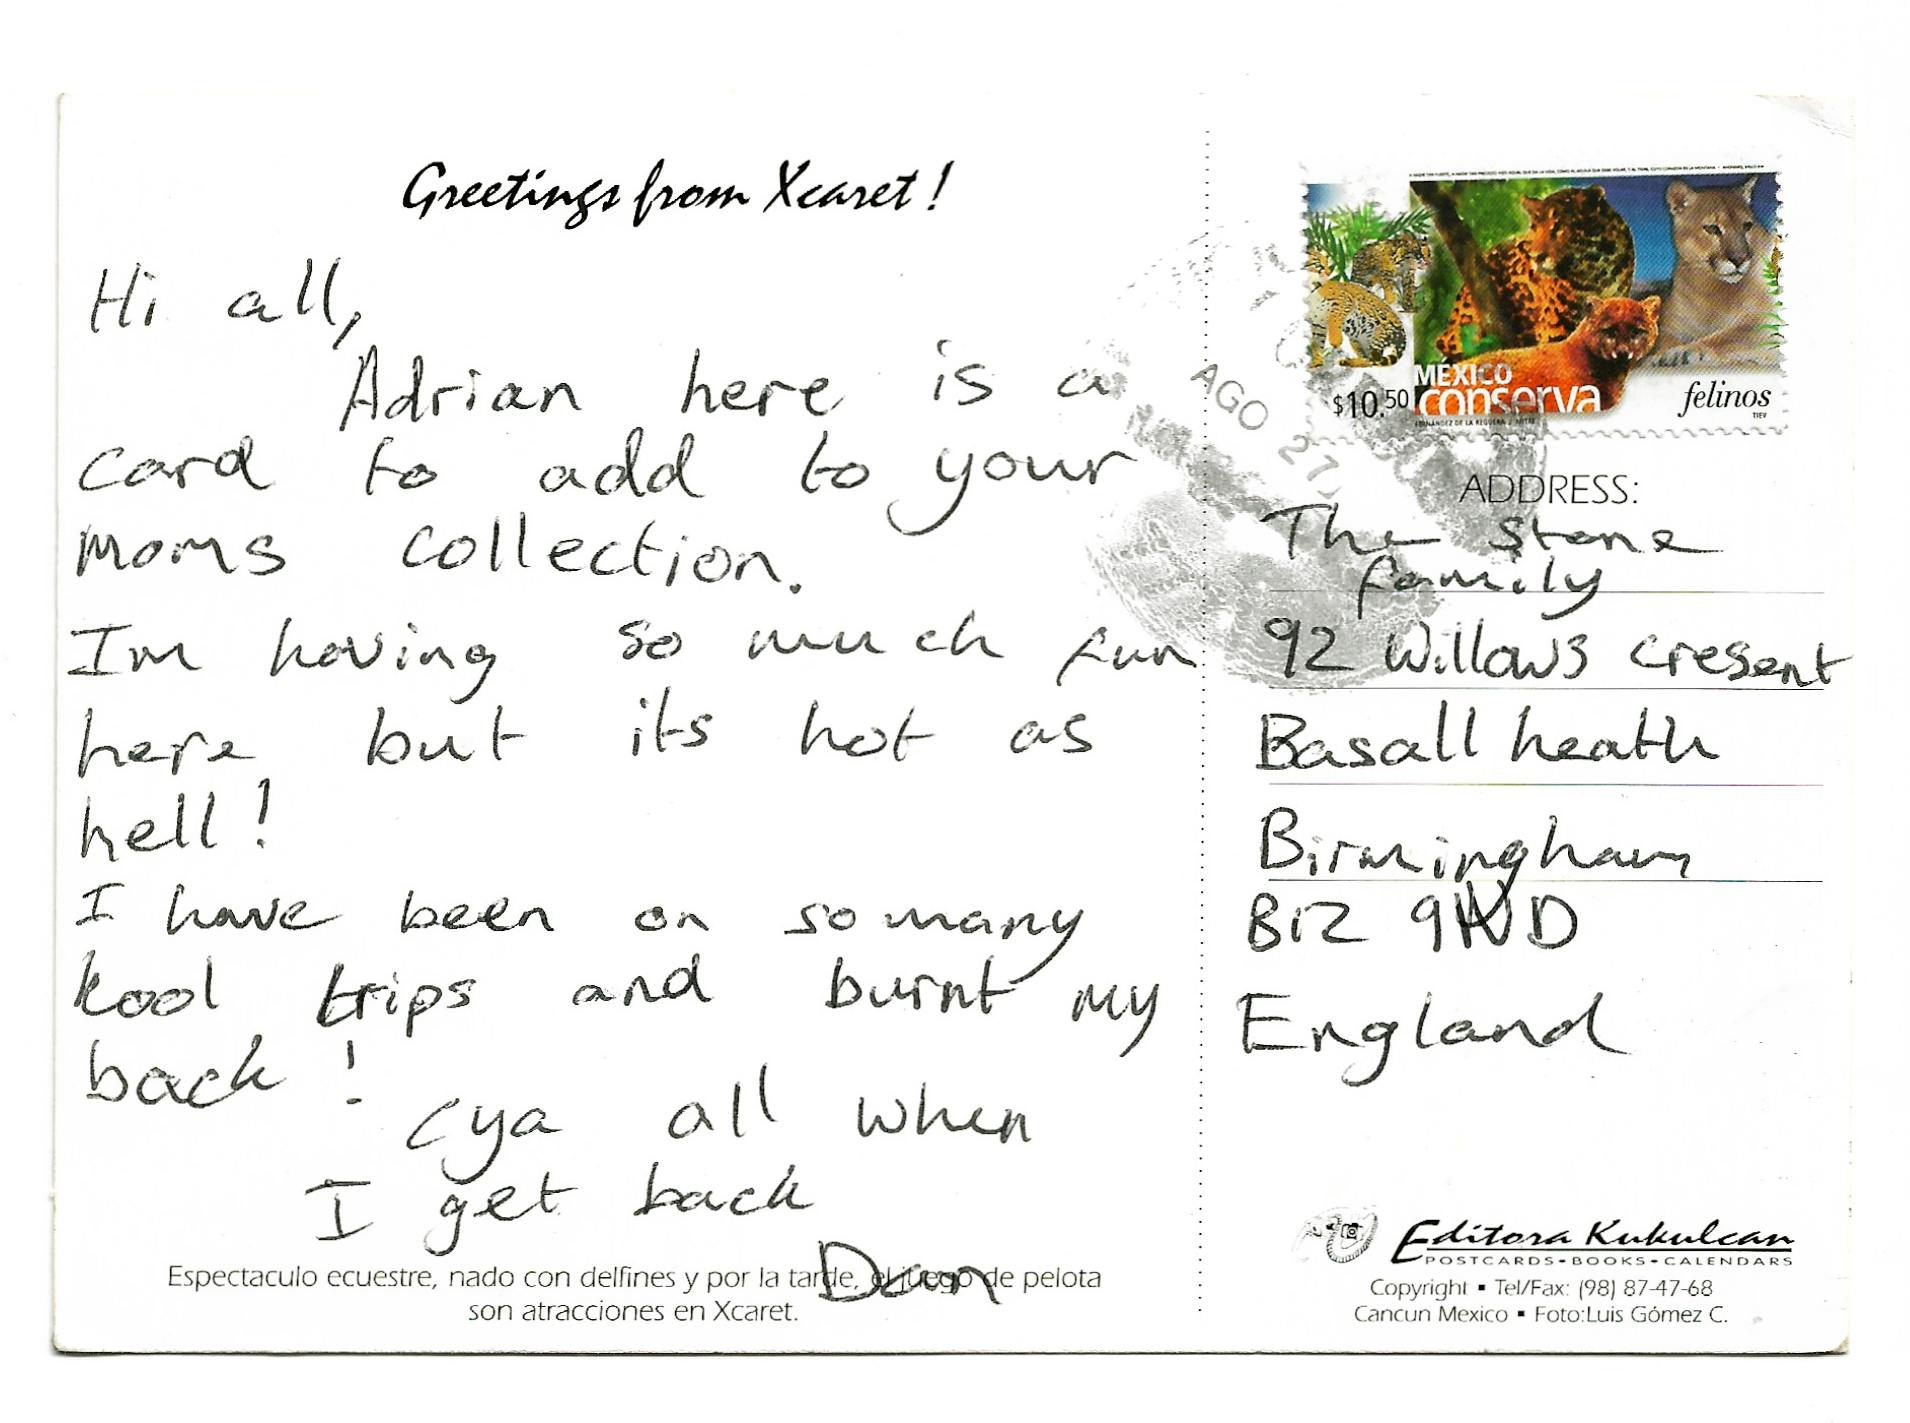 Greetings from Xcaret!
Hi all,
Adrian here is a
card to add to your
moms collection.
Im having so much fun
here but its hot as
hell!
I have been on so many
kool trips and burnt my
back!
cya all when
I get back
Dan
Espectaculo ecuestre, nado con delfines y por la tarde, el juego de pelota
son atracciones en Xcaret.
$10.50
MÉXICO
conserva
felinos
TIEV
AGO 27
ADDRESS:
The Stone
family
92 Willows cresent
Basall heath
Birmingham
B12 9ND
England
Editora Kukulcan
POSTCARDS•BOOKS•CALENDARS
Copyright ▪ Tel/Fax: (98) 87-47-68
Cancun Mexico ▪ Foto:Luis Gómez C.